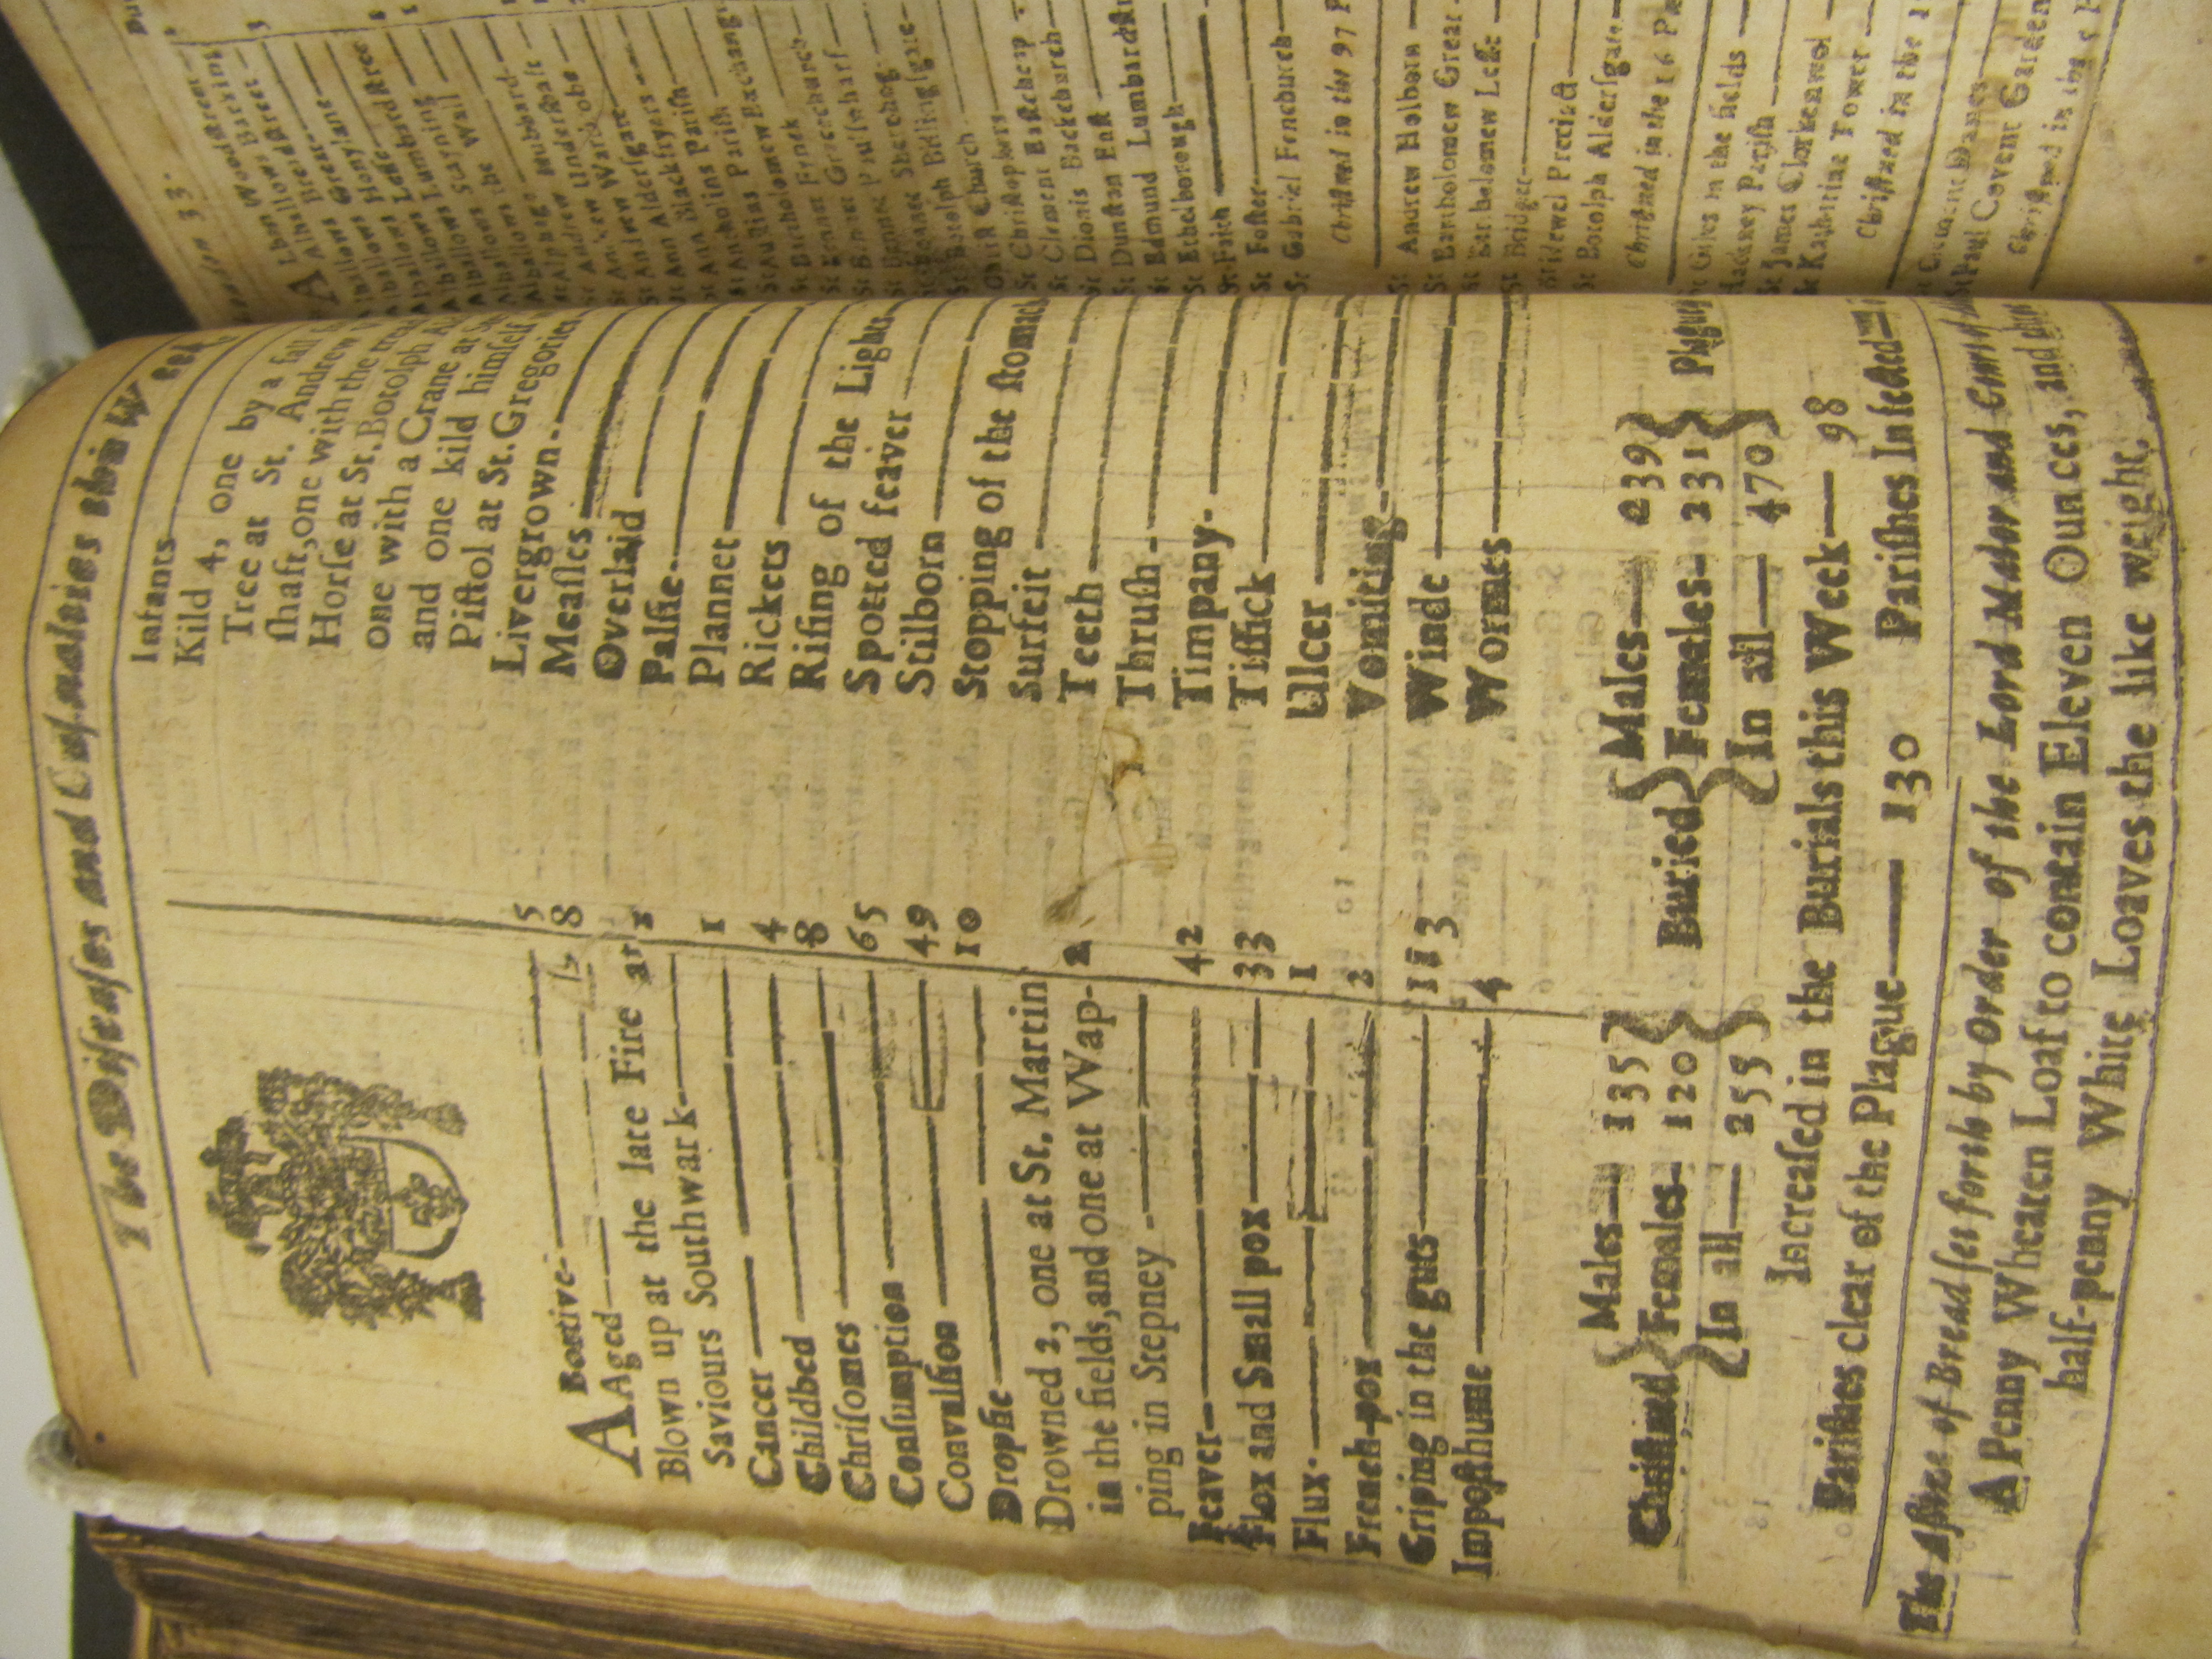 The Diseases and Casualties this Week
ABortive 5
Aged 8
Blown up at the late Fire at
Saviours Southwark 1
Cancer 1
Childbed 4
Chrisomes 8
Consumption 65
Convulsion 49
Dropsie 10
Drowned 2, one at St. Martin
in the fields, and one at Wap-
ping in Stepney 2
Feaver 42
Flox and Small pox 33
Flux 1
French-pox 2
Griping in the guts
Imposthume 4
Infants
Kild 4, one by a fall
Tree at St. Andrew
shaft, one with the
Horse at St. Botolph
one with a Crane at
and one kild himself
Pistol at St. Gregories
Livergrown
Measles
Overlaid
Palsie
Plannet
Rickets
Rising of the Lights
Spotted feaver
Stilborn
Stopping of the stomach
Surfeit
Teeth
Thrush
Timpany
Tissick
Ulcer
Vomiting
Winde
Wormes
Christned
Males 135
Females 120
In all 255
Buried
Males 239
Females 231
In all 470
Plague
Increased in the Burials this Week 98
Parishes clear of the Plague 130 Parishes Infected
The Assize of Bread set forth by Order of the Lord Mador and Court of
A Penny Wheaten Loaf to contain Eleven Ounces, and three
half-penny White Loaves the like weight.
London 33.
Alban Woodstreet
Alhallows Barking
Alhallows Breadstreet
Alhallows Great
Alhallows Honylane
Alhallows Lesse
Alhallows Lumbardstreet
Alhallows Staining
Alhallows the Wall
Alphage
Andrew Hubbard
St Andrew Undershaft
St Andrew Wardrobe
St Ann Aldersgate
St Ann Blackfryers
St Antholins Parish
St Austins Parish
St Bartholomew Exchange
St Bennet Fynck
St Bennet Gracechurch
St Bennet Paulswharf
St Bennet Sherehog
St Botolph Billingsgate
Christ Church
St Christophers
St Clement Eastcheap
St Dionis Backchurch
St Dunstan East
St Edmund Lumbardstr
St Ethelborough
St Faith
St Foster
St Gabriel Fenchurch
Christned in the 97 P
St Andrew Holborn
St Bartholomew Great
St Bartholomew Lesse
St Bridget
Bridewel Precinct
St Botolph Aldersgate
Christned in the 16 Pa
St Giles in the fields
Hackney Parish
St James Clerkenwel
St Katharine Tower
Christned in the 1
St Clement Danes
St Paul Covent Garden
Christned in the 5 P